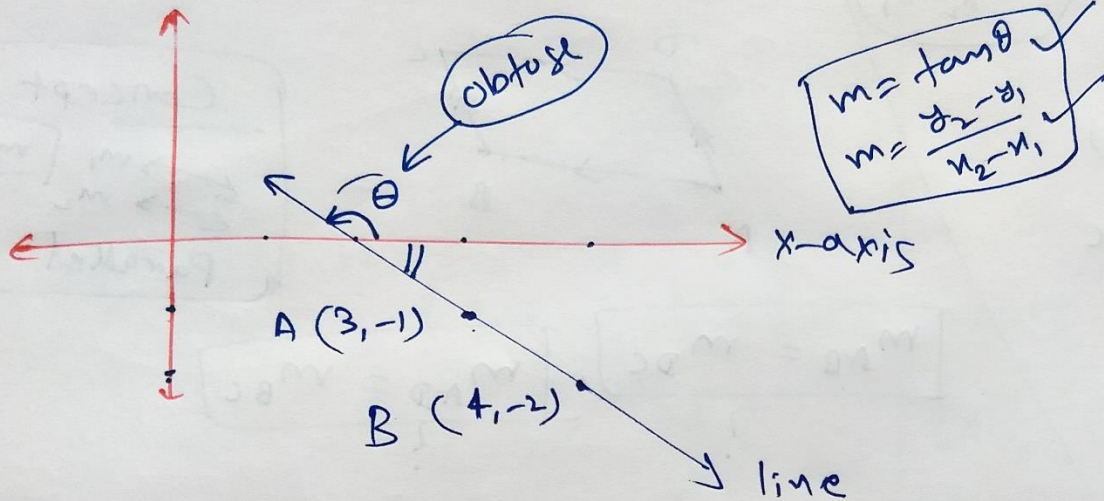 obtuse
m = tanθ
m = y₂-y₁ / x₂-x₁
θ
x-axis
A (3,-1)
B (4,-2)
line